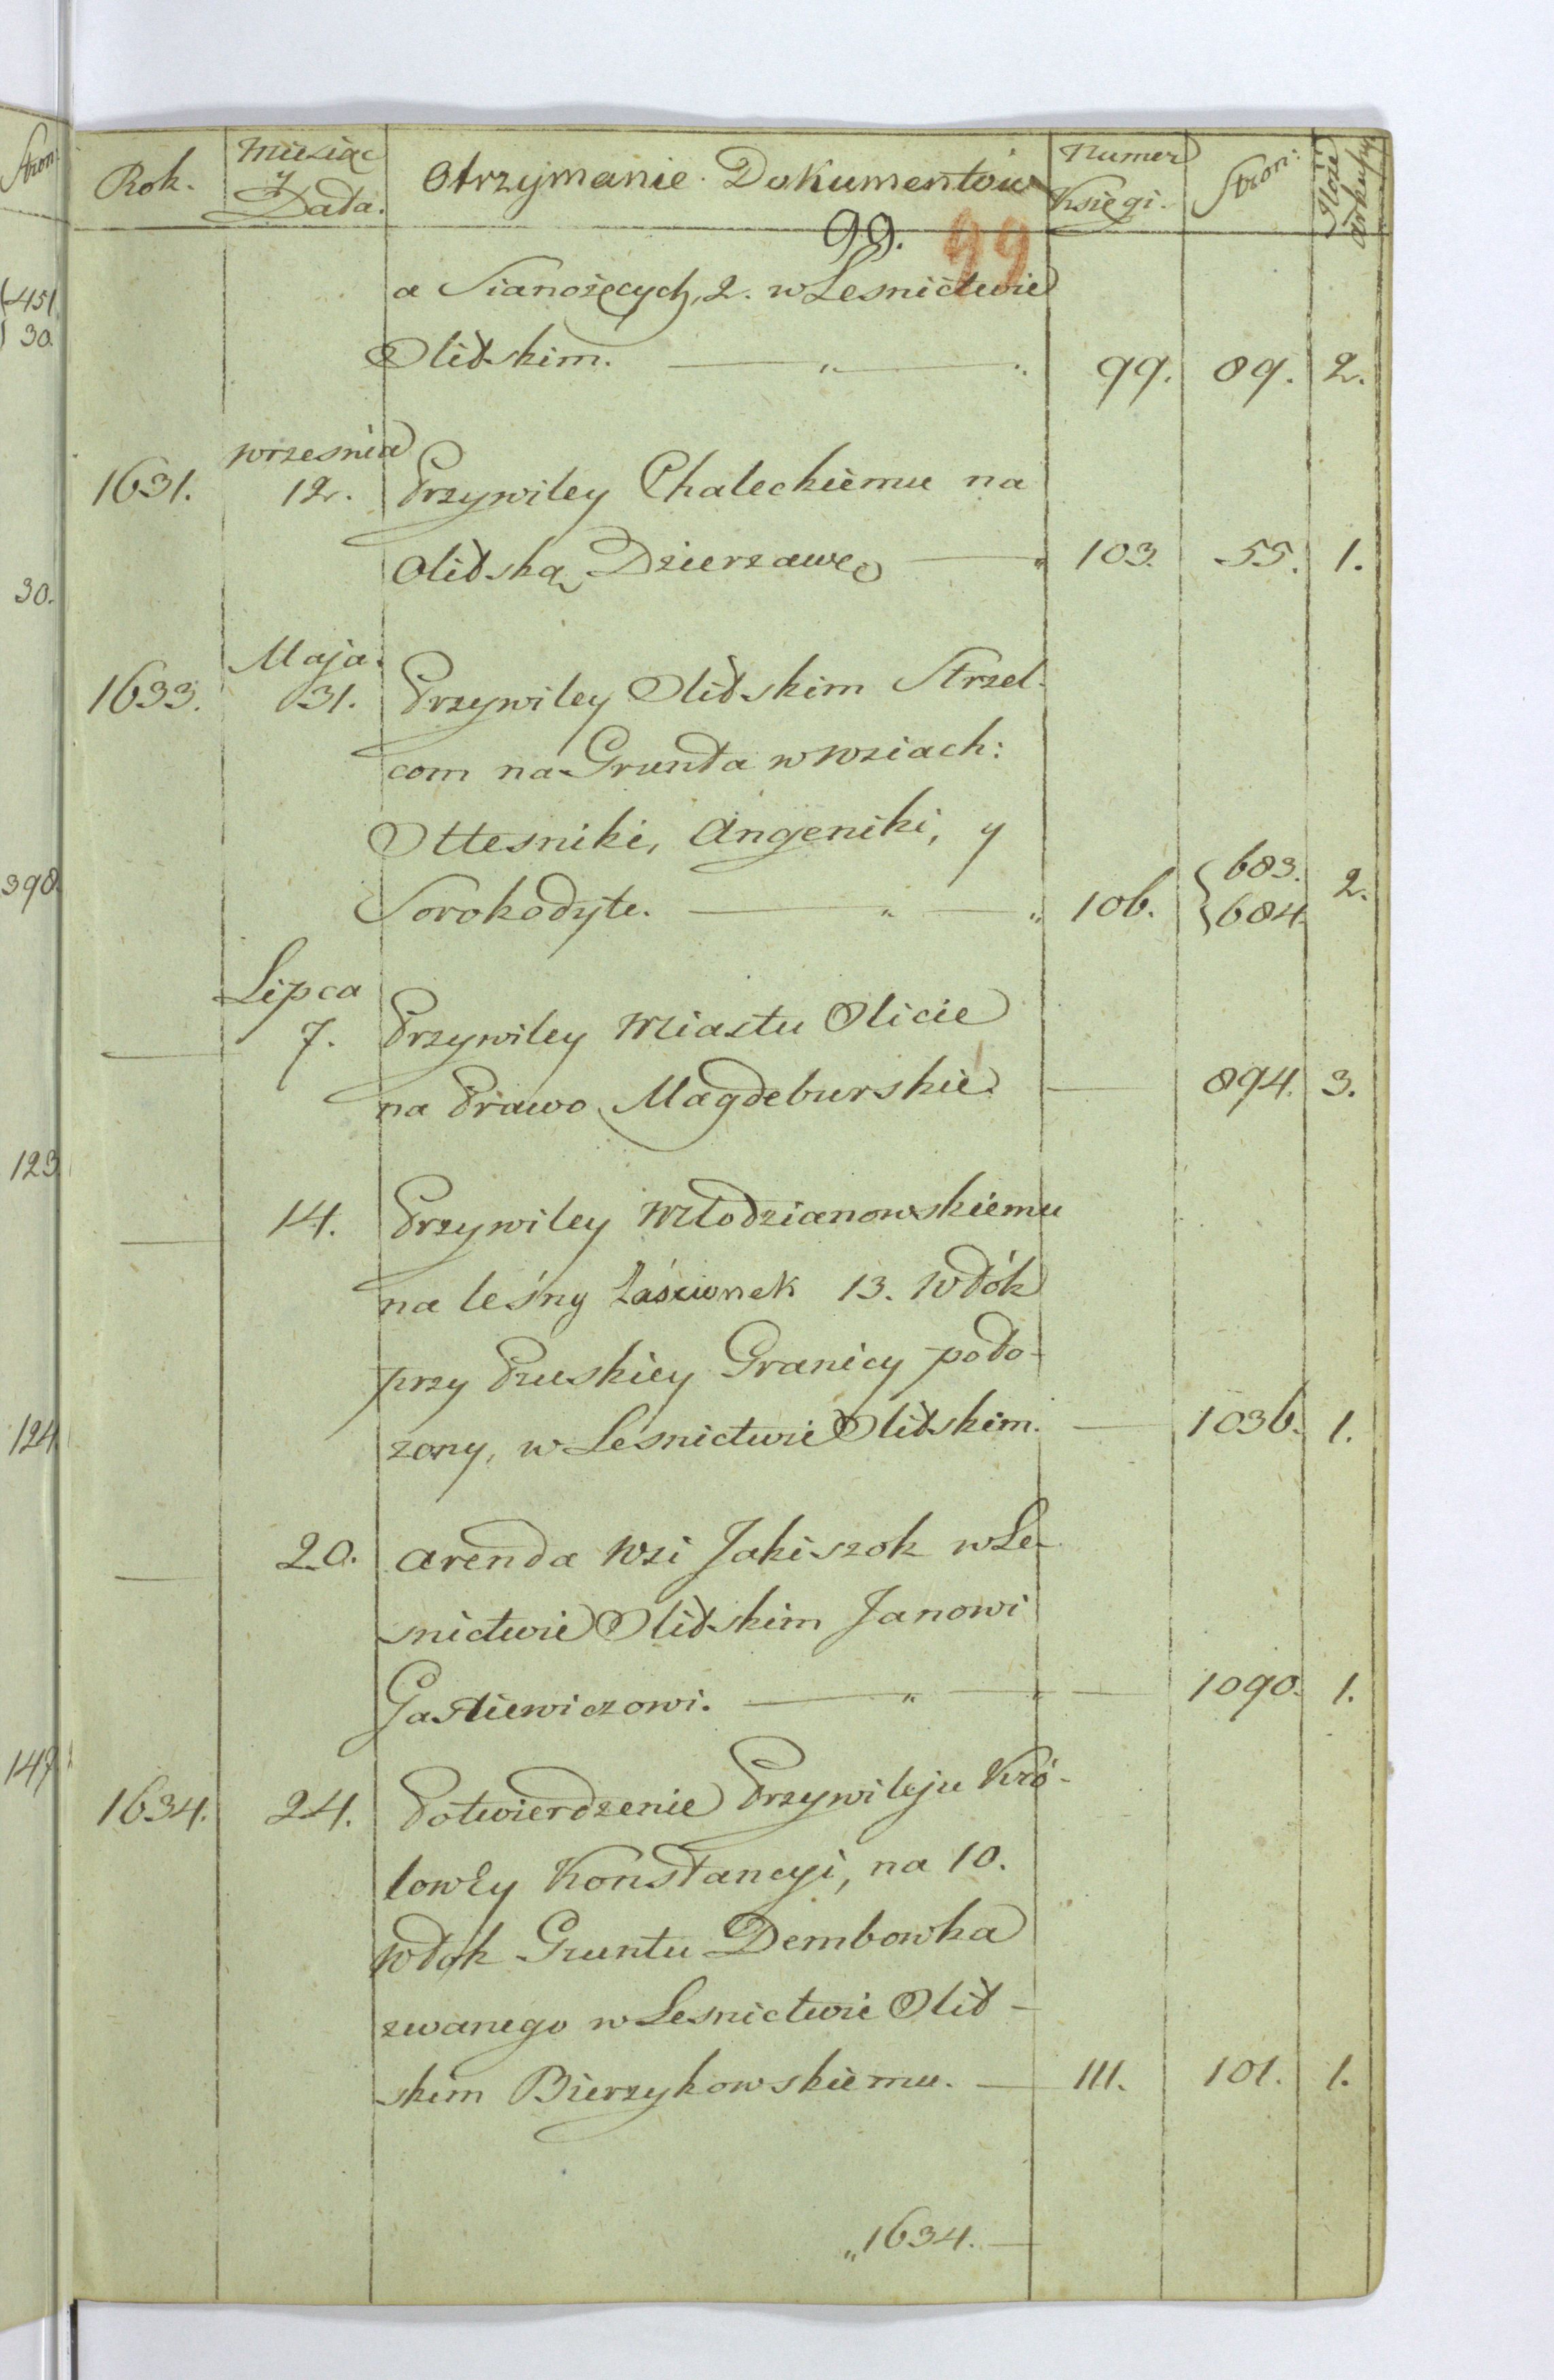 Stron:
Rok. Miesiąc y Data. Otrzymanie Dokumentów Numer Księgi. Stron: Ilość Arkuszy
99. 99
451.
30.
a Sianożęcych, 2. w Lesnictwie
Olitskim. 99. 89. 2.
września
1631. 12. Przywiley Chaleckiemu na
30.
Olitską Dzierzawę 103. 55. 1.
Maja.
1633. 31. Przywiley Olitskim Strzel-
com na Grunta w Wsiach:
Ottesniki, Angeniki, y
398.
Sorokodyte. 106. 683. 684. 2.
Lipca
7. Przywiley Miastu Olicie
na Prawo Magdeburskie. 894. 3.
123
14. Przywiley Młodzianowskiemu
na leśny Zaścionek 13. Włók
przy Pruskiey Granicy poło-
124
zony, w Lesnictwie Olitskim. 1036. 1.
20. Arenda Wsi Jakiszok w Le-
snictwie Olitskim Janowi
Gastiewiczowi. 1090. 1.
147
1634. 24. Potwierdzenie Przywileju Kró-
lowey Konstancyi, na 10.
Włok Gruntu Dembowka
zwanego w Lesnictwie Olit-
skim Bierzykowskiemu. 111. 101. 1.
„1634.